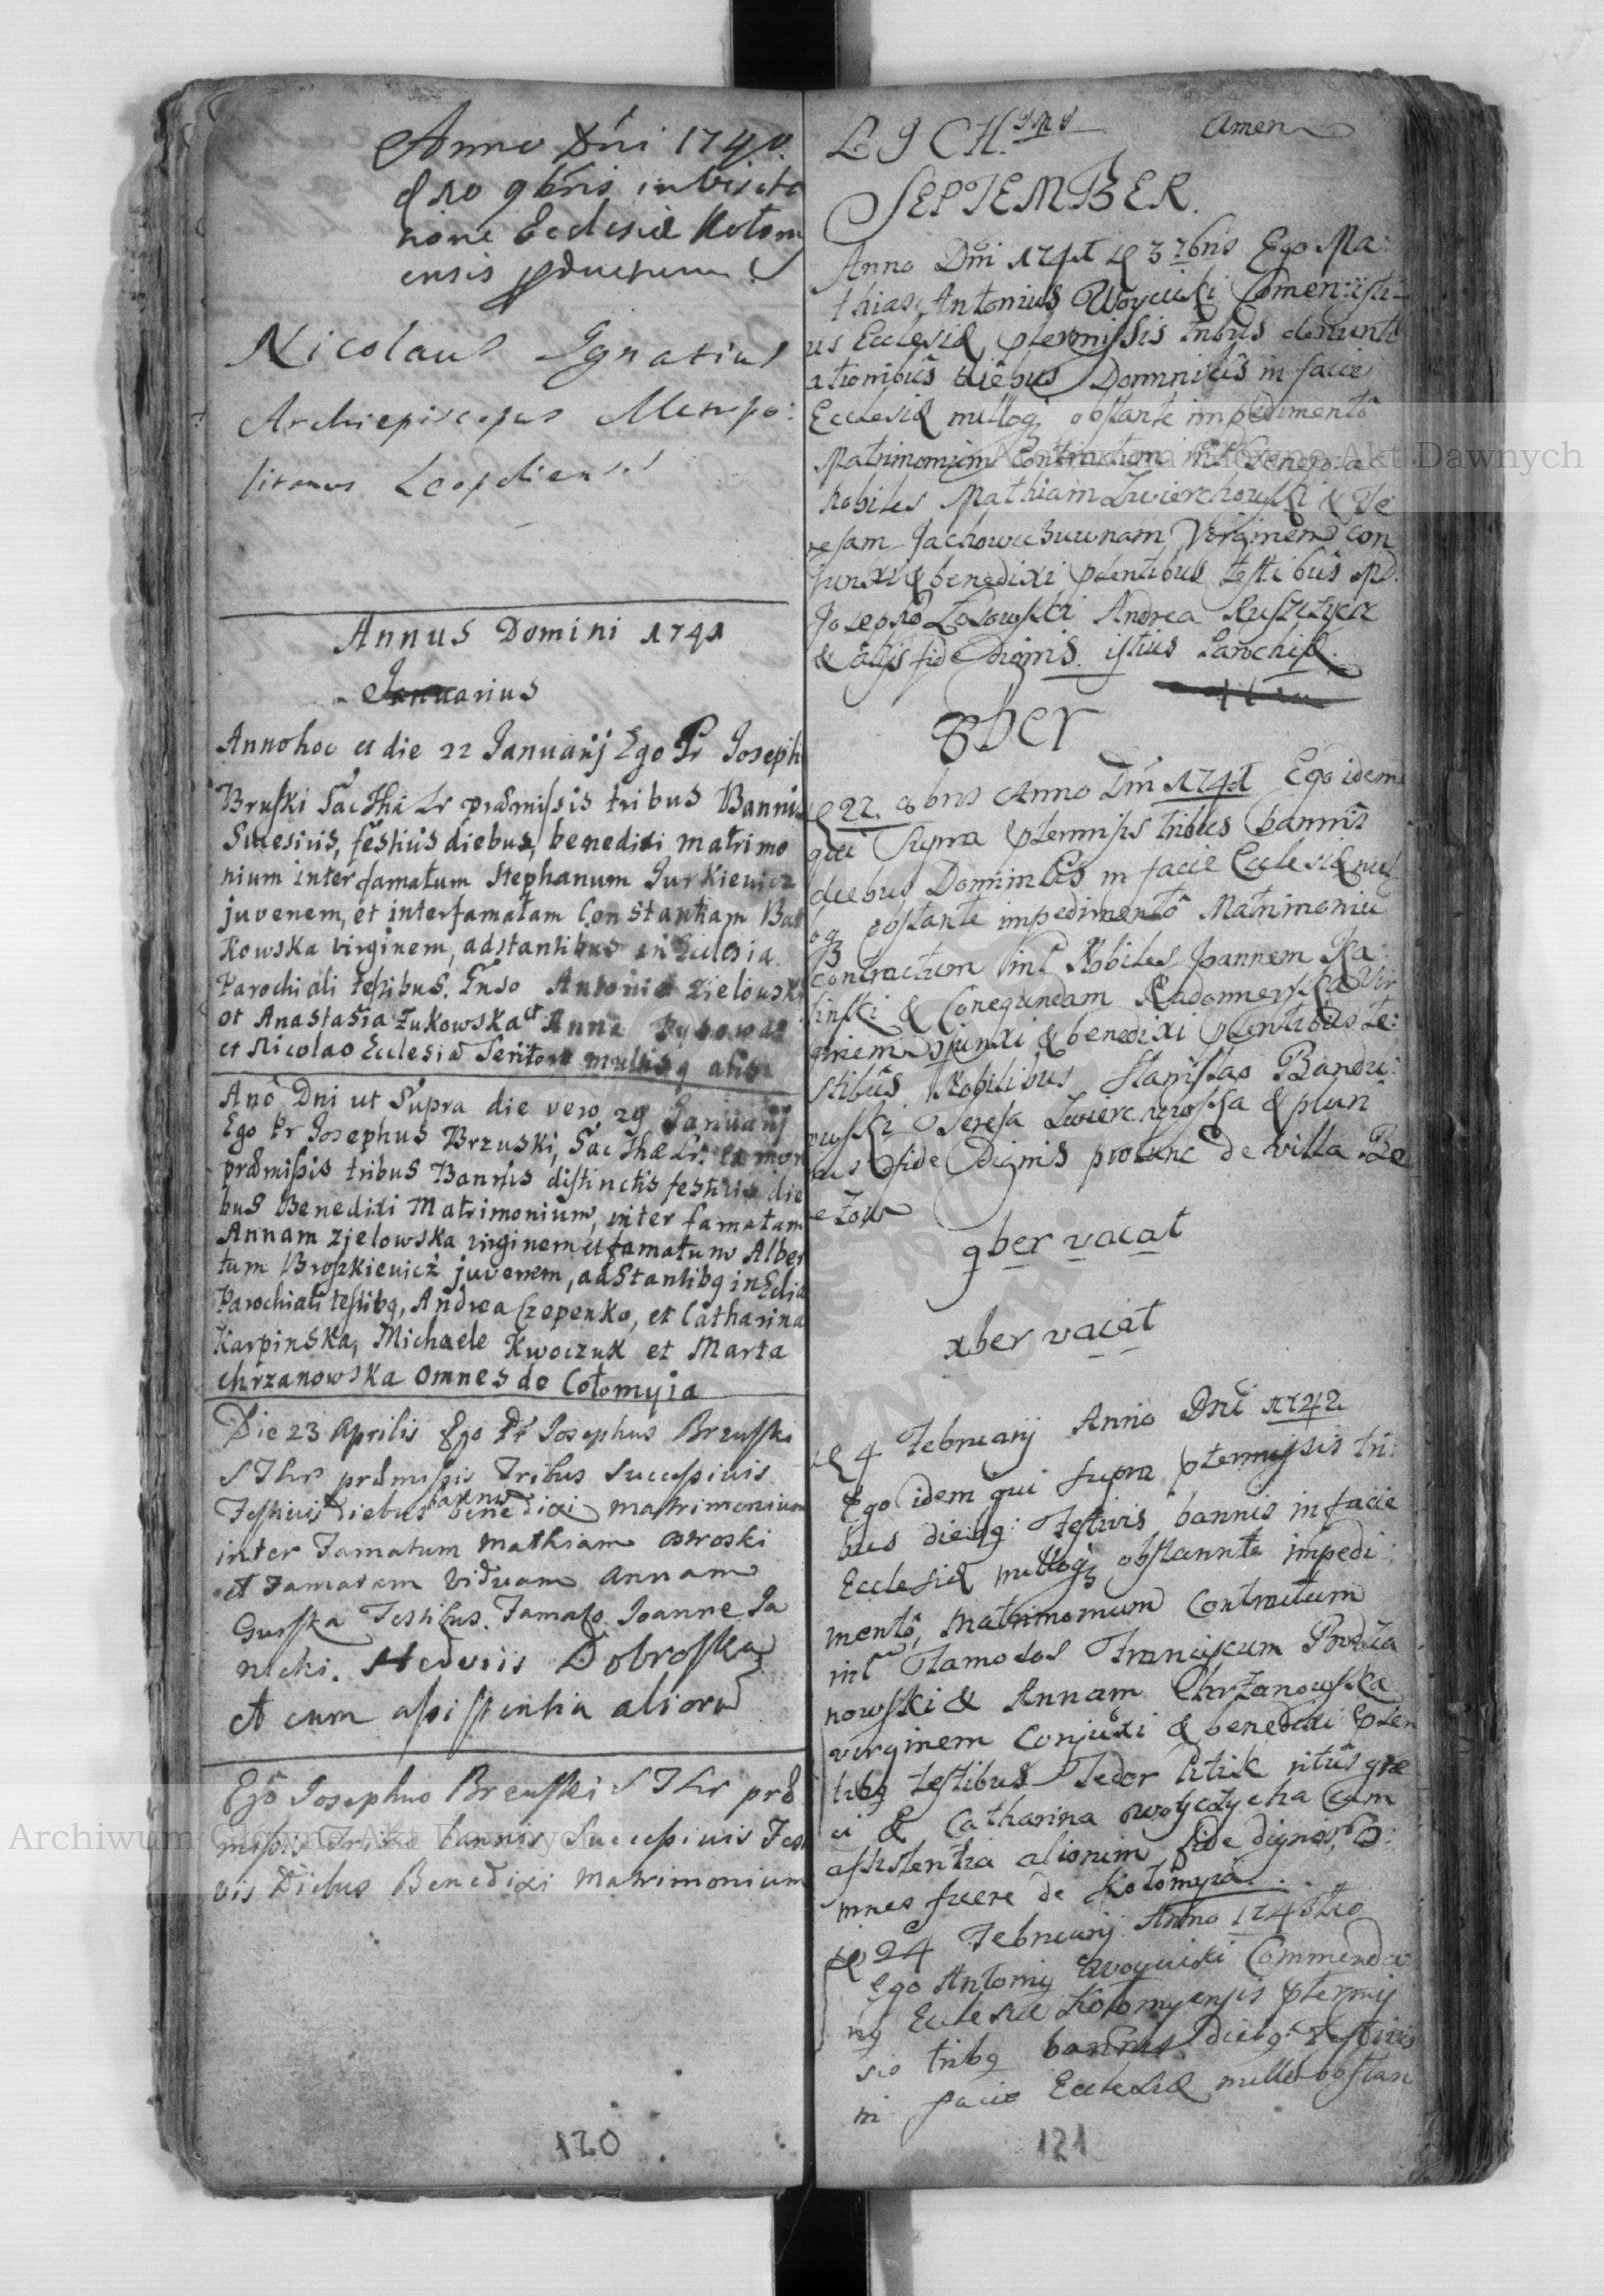 Anno Dni 1740
d 10 9bris in Visita
tione Ecclesiæ Kołom
ensis productum
Nicolaus Ignatius
Archiepiscopus Metropo:
litanus Leopoliensis
Annus Domini 1741
Januarius
Anno hoc et die 22 Januarij Ego Pr Joseph
Bruski Sac Thæ Lr præmissis tribus Bannis
Sucesivis, festivis diebus, benedixi matrimo
nium inter famatum Stephanum Jurkiewicz
juvenem, et inter famatam Constantiam But
kowska virginem, adstantibus in Eclesia
Parochiali testibus. Fnso Antonio Zielowski
et Anastasia Zukowska et Anna
et Nicolao Ecclesiæ Servitore multisq aliis
Ano Dni ut Supra die vero 29 Januarij
Ego Pr Josephus Brzuski, Sac Thæ Lr.
præmissis tribus Bannis distinctis festivis die
bus Benedixi Matrimonium, inter famatam
Annam Zjelowska virginem et famatum Alber
tum Broszkiewicz juvenem, adstantibq in Eclia
Parochiali testibq, Andrea Czepenko, et Catharina
Karpinska, Michaele Kwoczuk et Marta
chrzanowska omnes de Cołomyia
Die 23 Aprilis Ego Pr Josephus Brzuski
S Thr præmissis Tribus Successivis
Festivis diebus bannis benedixi matrimonium
inter Famatum Mathiam Ostroski
et Famatam Viduam Annam
Gurska Testibus. Famato Joanne Ja
nicki. Hedviis Dobroska
et cum assistentia aliorū
Ego Josephus Brzuski S Thr præ
missis Tribus bannis Successivis Fes
vis Diebus Benedixi Matrimonium
120
Amen
SEPTEMBER.
Anno Dni 1741 d 3 7bris Ego Ma:
thias Antonius Woycicki Comen:isti
us Ecclesiæ ptermissis tribus denunti
ationibus diebus Dominicis in facie
Ecclesiæ nulloq obstante impedimento
Matrimonium Contractum int Generosa
Nobiles Mathiam Zwierchowski & Te
resam Jachowiczuwnam Virginem con
junxi & benedixi ptentibus testibus
Josepho Łosowski Andrea
& alijs fide dignis istius Parochiæ.
8ber
d 22. 8bris Anno Dni 1741 Ego idem
qui Supra ptermissis tribus bannis
diebus Dominicis in facie Ecclesiæ nul
oq obstante impedimento Matrimoniu
contractum int Nobiles Joannem Ka:
linski & Conegundam Radomerska Vir
ginem conjunxi & benedixi ptentibus te:
stibus Nobilibus Stanislao Bandu:
rowski Teresa Zwierchowska & pluri
bus fide Dignis protunc de villa Be
rezow
9ber vacat
xber vacat
d 4 Februarij Anno Dni 1742
Ego idem qui supra ptermissis tri:
bus diebq: Festivis bannis in facie
Ecclesiæ nulloq obstannte impedi:
mento, Matrimonium Contractum
int Famatos Franciscum
nowski & Annam Chrzanowska
virginem Conjuxi & benedixi pten
tibq testibus Fedor Litik ritus græ
ci & Catharina cum
assistentia aliorum fide dignor, O:
mnes fuere de Kołomyia.
d 24 Februarij Anno 1743tio
Ego Antoniq Woycicki Commenda
riq Ecclesiæ Kołomyensis ptermis
sis tribq bannis diebq: Festivis
in facie Ecclesiæ nullo obstan
121
Archiwum Główne Akt Dawnych
Archiwum Główne Akt Dawnych